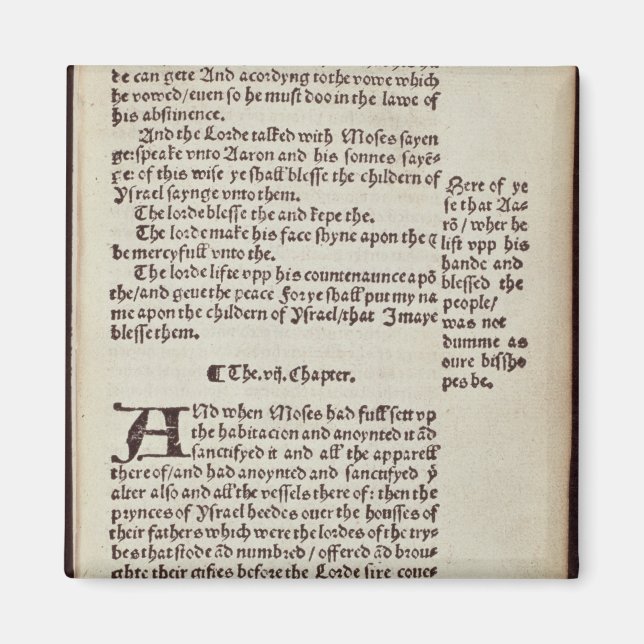 de can gete And acordyng to the vowe which
he vowed/even so he must doo in the lawe of
his abstinence.
And the Lorde talked with Moses sayen
ge: speake vnto Aaron and his sonnes sayẽ-
ge: of this wise ye shall blesse the childern of
Ysrael saynge vnto them.
The lorde blesse the and kepe the.
The lorde make his face shyne apon the ⁊
be mercyfull vnto the.
The lorde lifte vpp his countenaunce apõ
the/and geve the peace For ye shall put my na
me apon the childern of Ysrael/that I maye
blesse them.
Here of ye
se that Aa-
rõ/wher he
lift vpp his
hande and
blessed the
people/
was not
dumme as
oure bissho
pes be.
¶ The .vij. Chapter.
ANd when Moses had full sett vp
the habitacion and anoynted it ãd
sanctifyed it and all the apparell
there of/and had anoynted and sanctifyed ẏ
alter also and all the vessels there of: then the
prynces of Ysrael heedes over the housses of
their fathers which were the lordes of the try-
bes that stode ãd numbred/offered ãd brou-
ghte their giftes before the Lorde sixe couc-